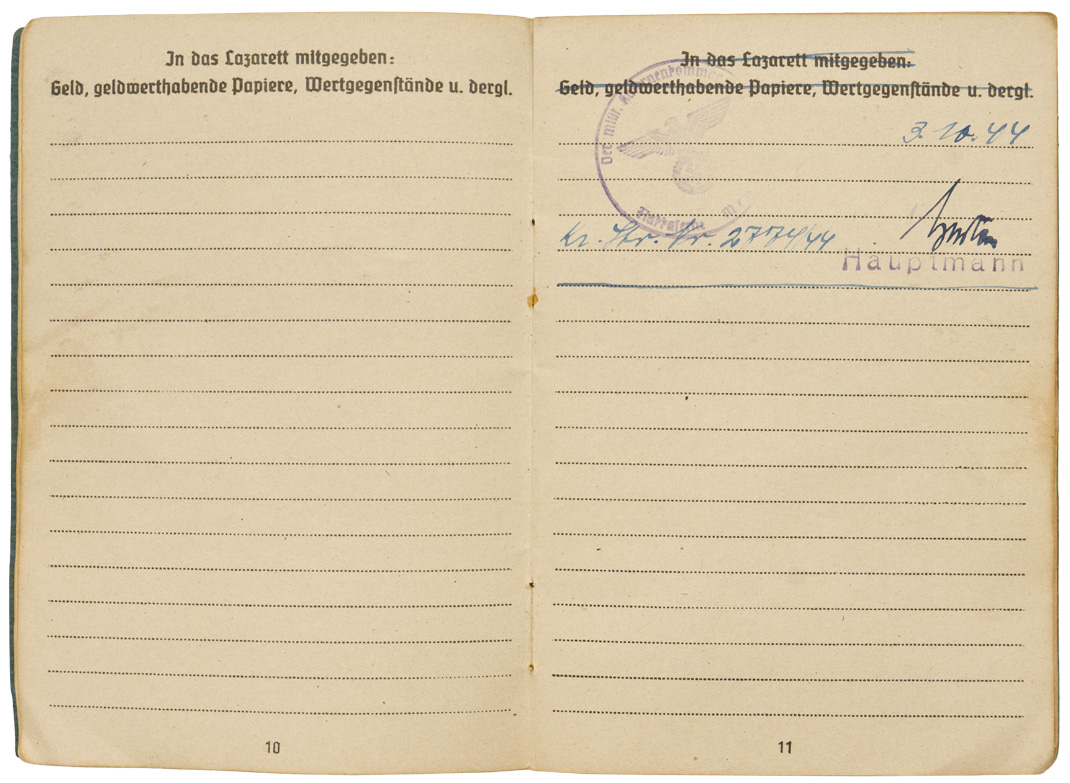 In das Lazarett mitgegeben:
Geld, geldwerthabende Papiere, Wertgegenstände u. dergl.
10
In das Lazarett mitgegeben:
Geld, geldwerthabende Papiere, Wertgegenstände u. dergl.
Der milit.
3.10.44
Hauptmann
11